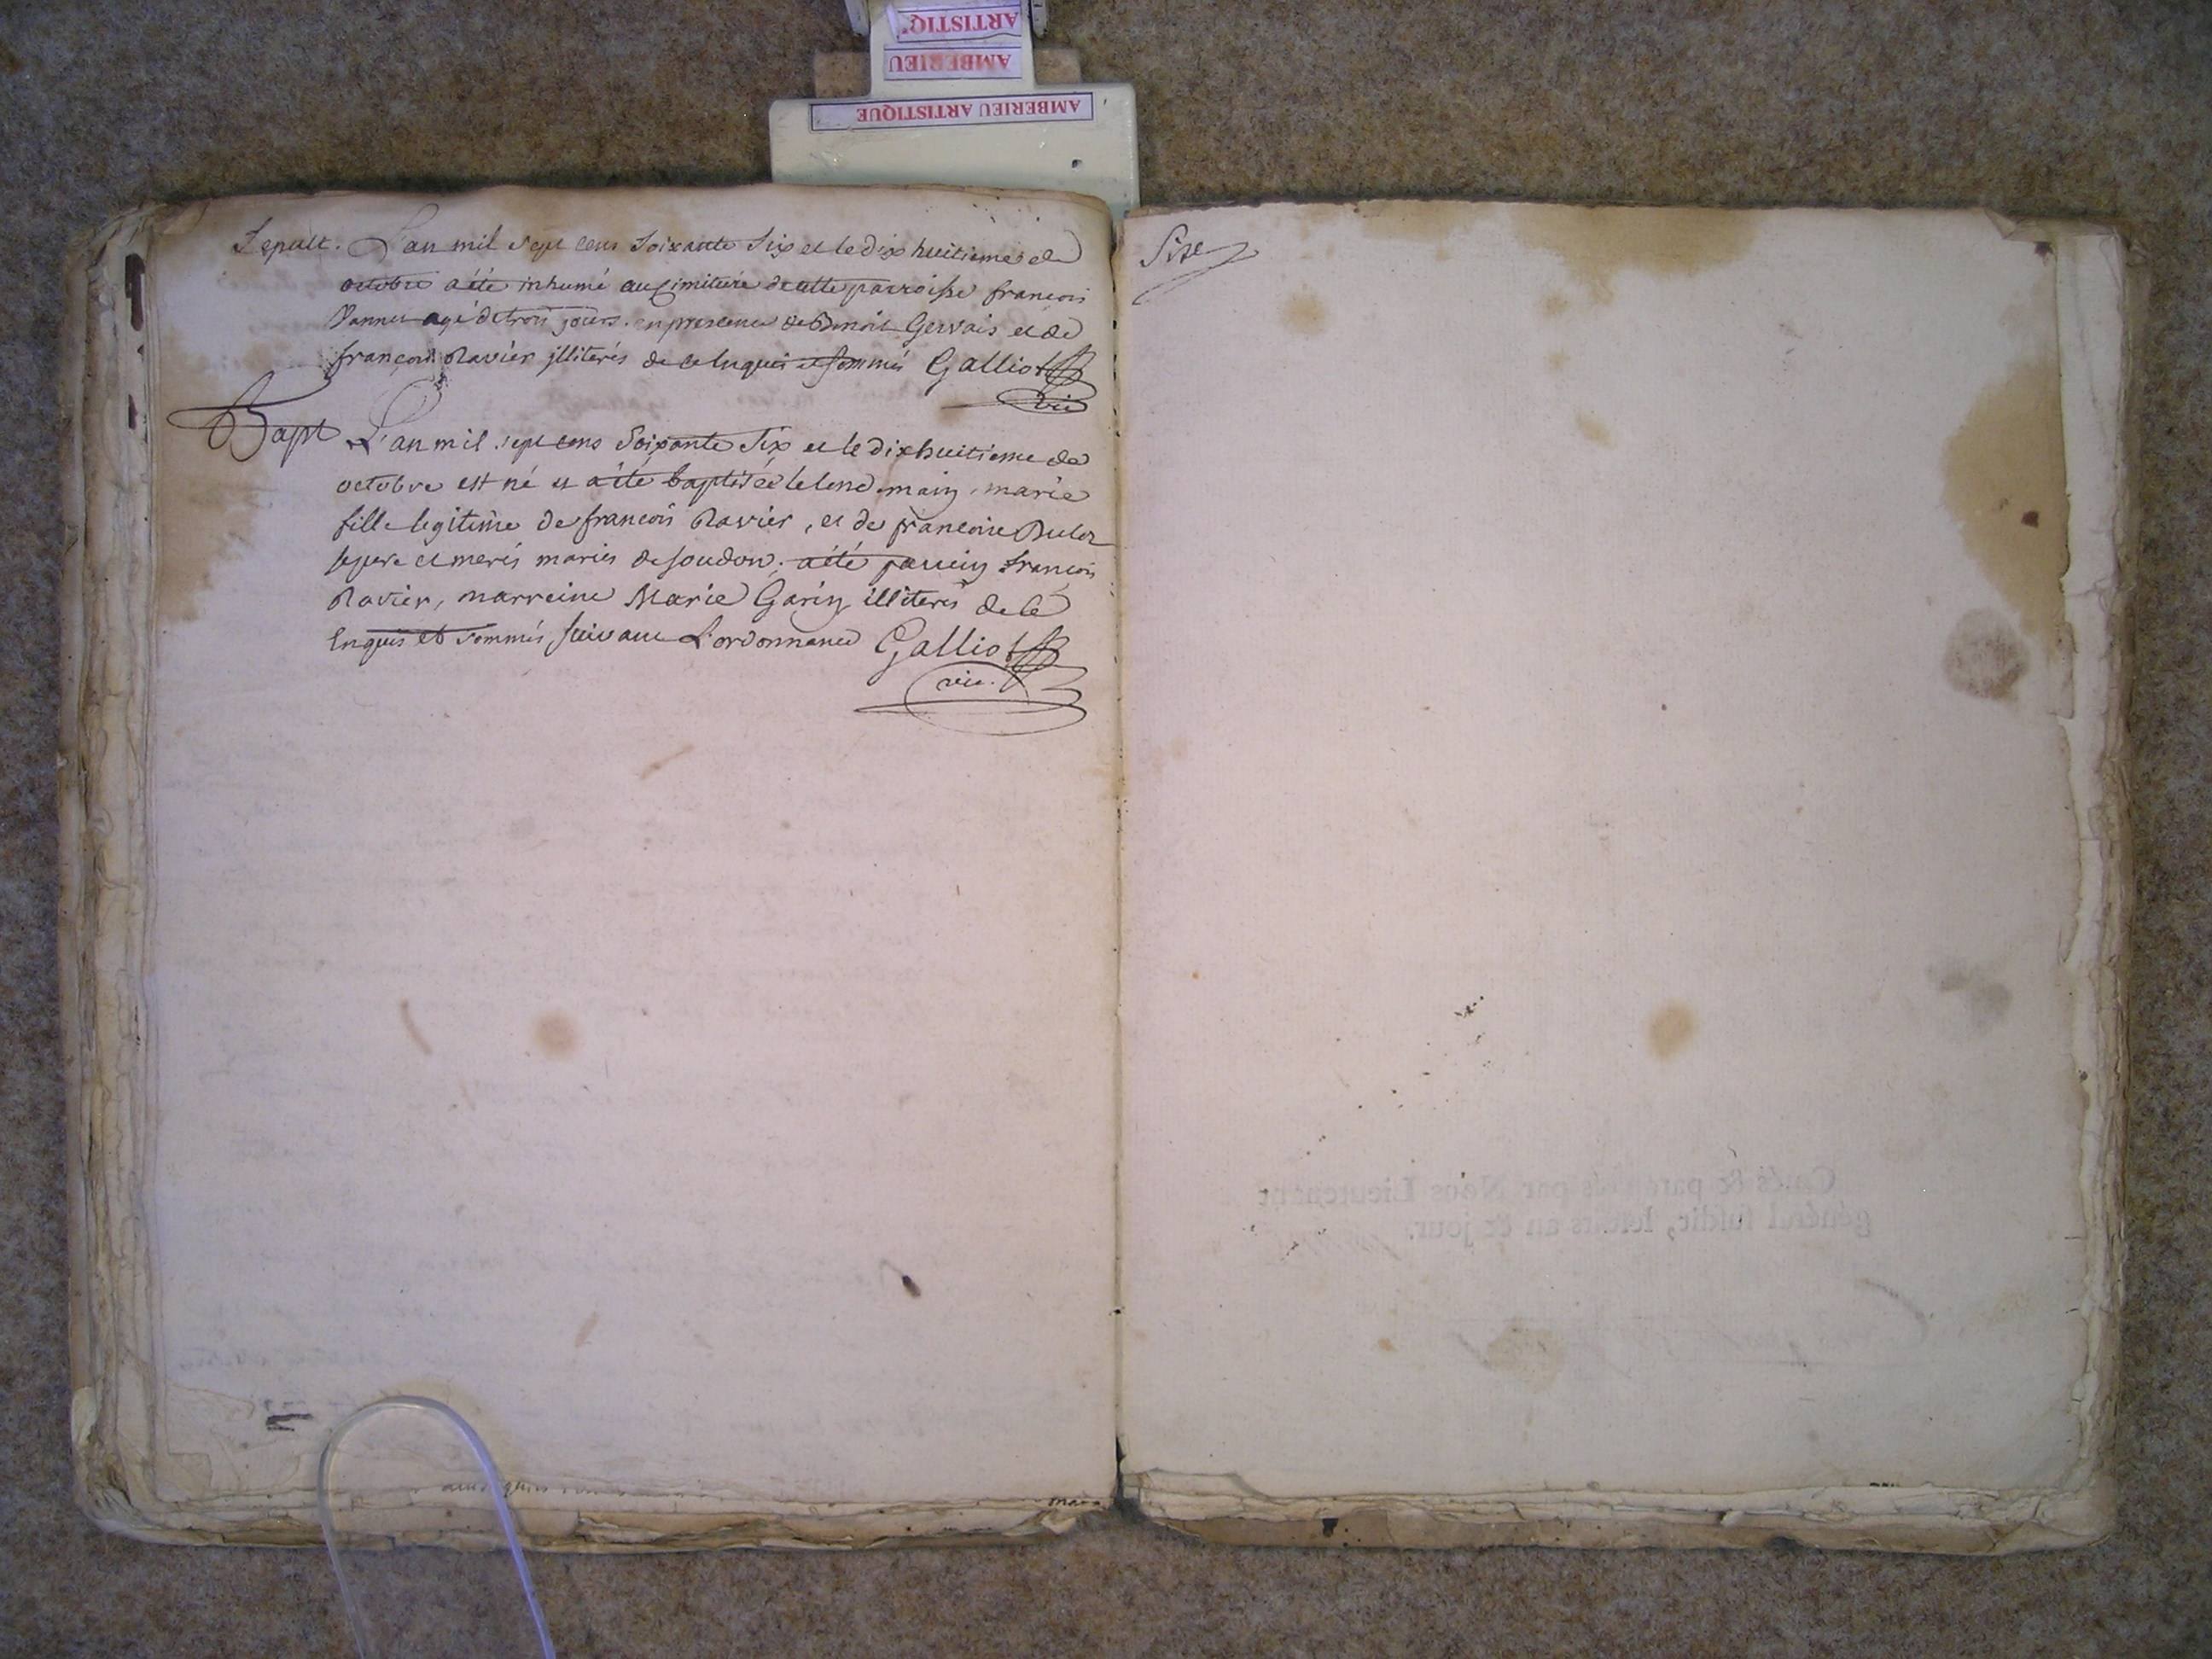 ARTISTIQ'
AMBERIEU
AMBERIEU ARTISTIQUE
Sepult. L'an mil sept cens soixante six et le dix huitieme de
octobre a été inhumé au cimitiére de cette parroisse francois
agé de trois jours. en presence de Benoit Gervais et de
francois Ravier illiterés de ce enquis et sommés Galliot
vic
Bapt L'an mil sept cens soixante six et le dixhuitieme de
octobre est né et a été baptisée le lendemain, marie
fille legitime de francois Ravier, et de francoise
ses pere et meres mariés de soudon. a été parrein francois
Ravier, marreine Marie Garin illiterés de ce
enquis et sommés suivant L'ordonnance Galliot
vic.
Size
Cotés & paraphés par Nous Lieutenant
général susdit, lesdits an & jour.